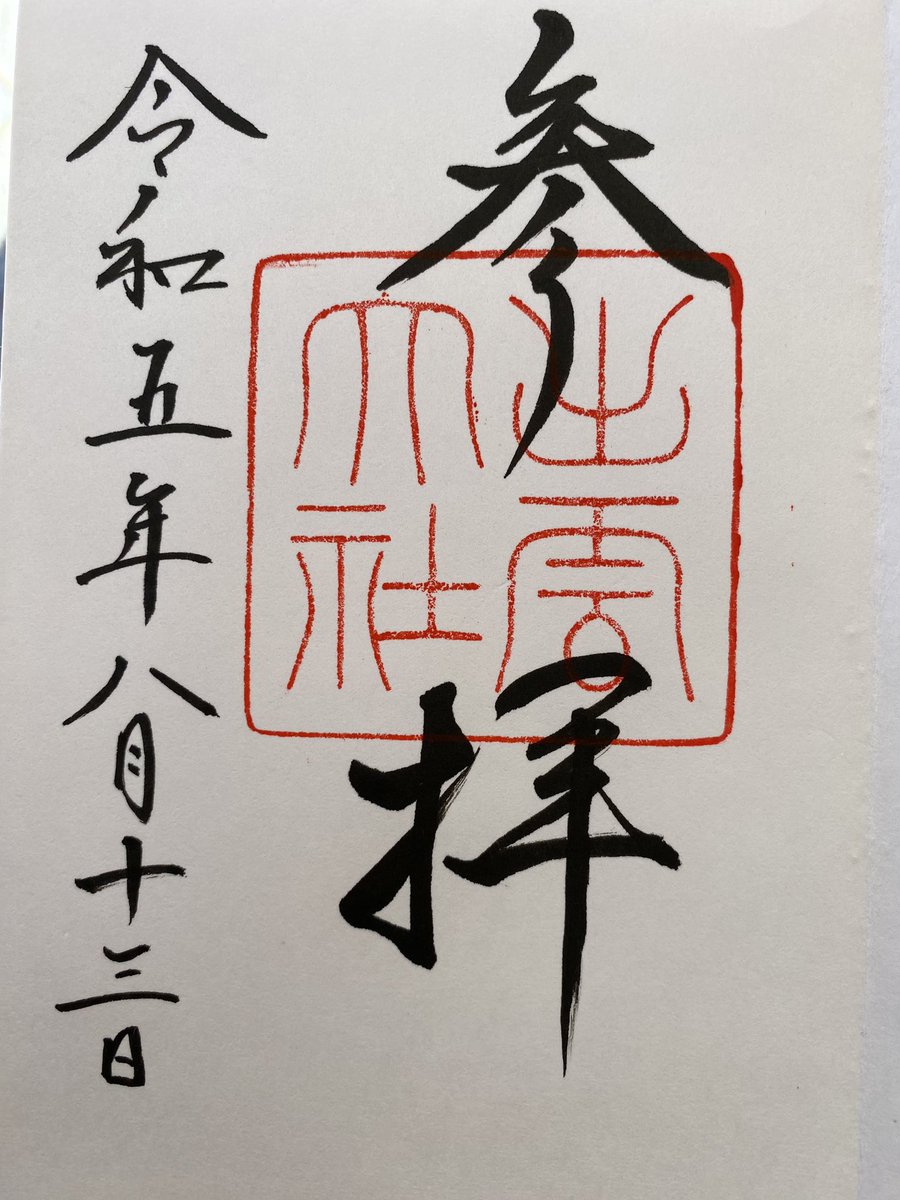 参拝
出雲
大社
令和五年八月十三日